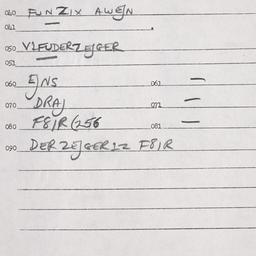 060 FUNZIX AWEJN
061
050 VIFUDERZEJGER
051
060 EJNS 061 —
070 DRAJ 071 —
080 F8JR (256 081 —
090 DER ZEJGER 12 F8JR